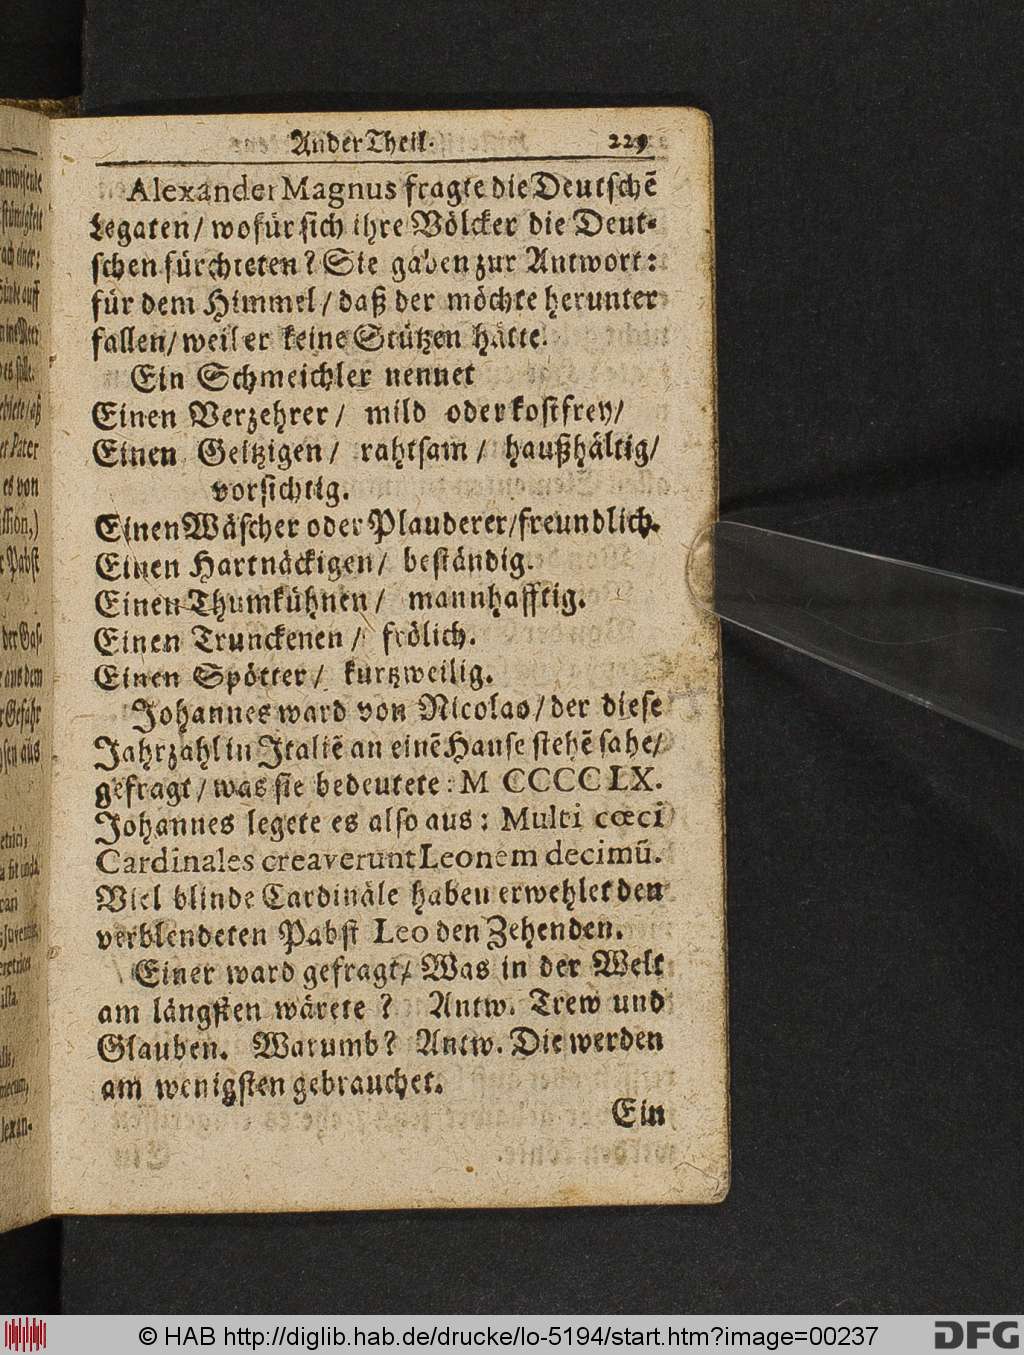 Ander Theil. 229
Alexander Magnus fragte die Deutschē
Legaten/ wofür sich ihre Völcker die Deut-
schen fürchteten? Sie gaben zur Antwort:
für dem Himmel/ daß der möchte herunter
fallen/ weil er keine Stützen hätte.
Ein Schmeichler nennet
Einen Verzehrer/ mild oder kostfrey/
Einen Geitzigen/ rahtsam/ haußhältig/
vorsichtig.
Einen Wäscher oder Plauderer/ freundlich.
Einen Hartnäckigen/ beständig.
Einen Thumkühnen/ mannhafftig.
Einen Trunckenen/ frölich.
Einen Spötter/ kurtzweilig.
Johannes ward von Nicolao/ der diese
Jahrzahl in Italiē an einē Hause stehē sahe/
gefragt/ was sie bedeutete: M CCCC LX.
Johannes legete es also aus: Multi cœci
Cardinales creaverunt Leonem decimū.
Viel blinde Cardinäle haben erwehlet den
verblendeten Pabst Leo den Zehenden.
Einer ward gefragt/ Was in der Welt
am längsten wärete? Antw. Trew und
Glauben. Warumb? Antw. Die werden
am wenigsten gebrauchet.
Ein
© HAB http://diglib.hab.de/drucke/lo-5194/start.htm?image=00237
DFG